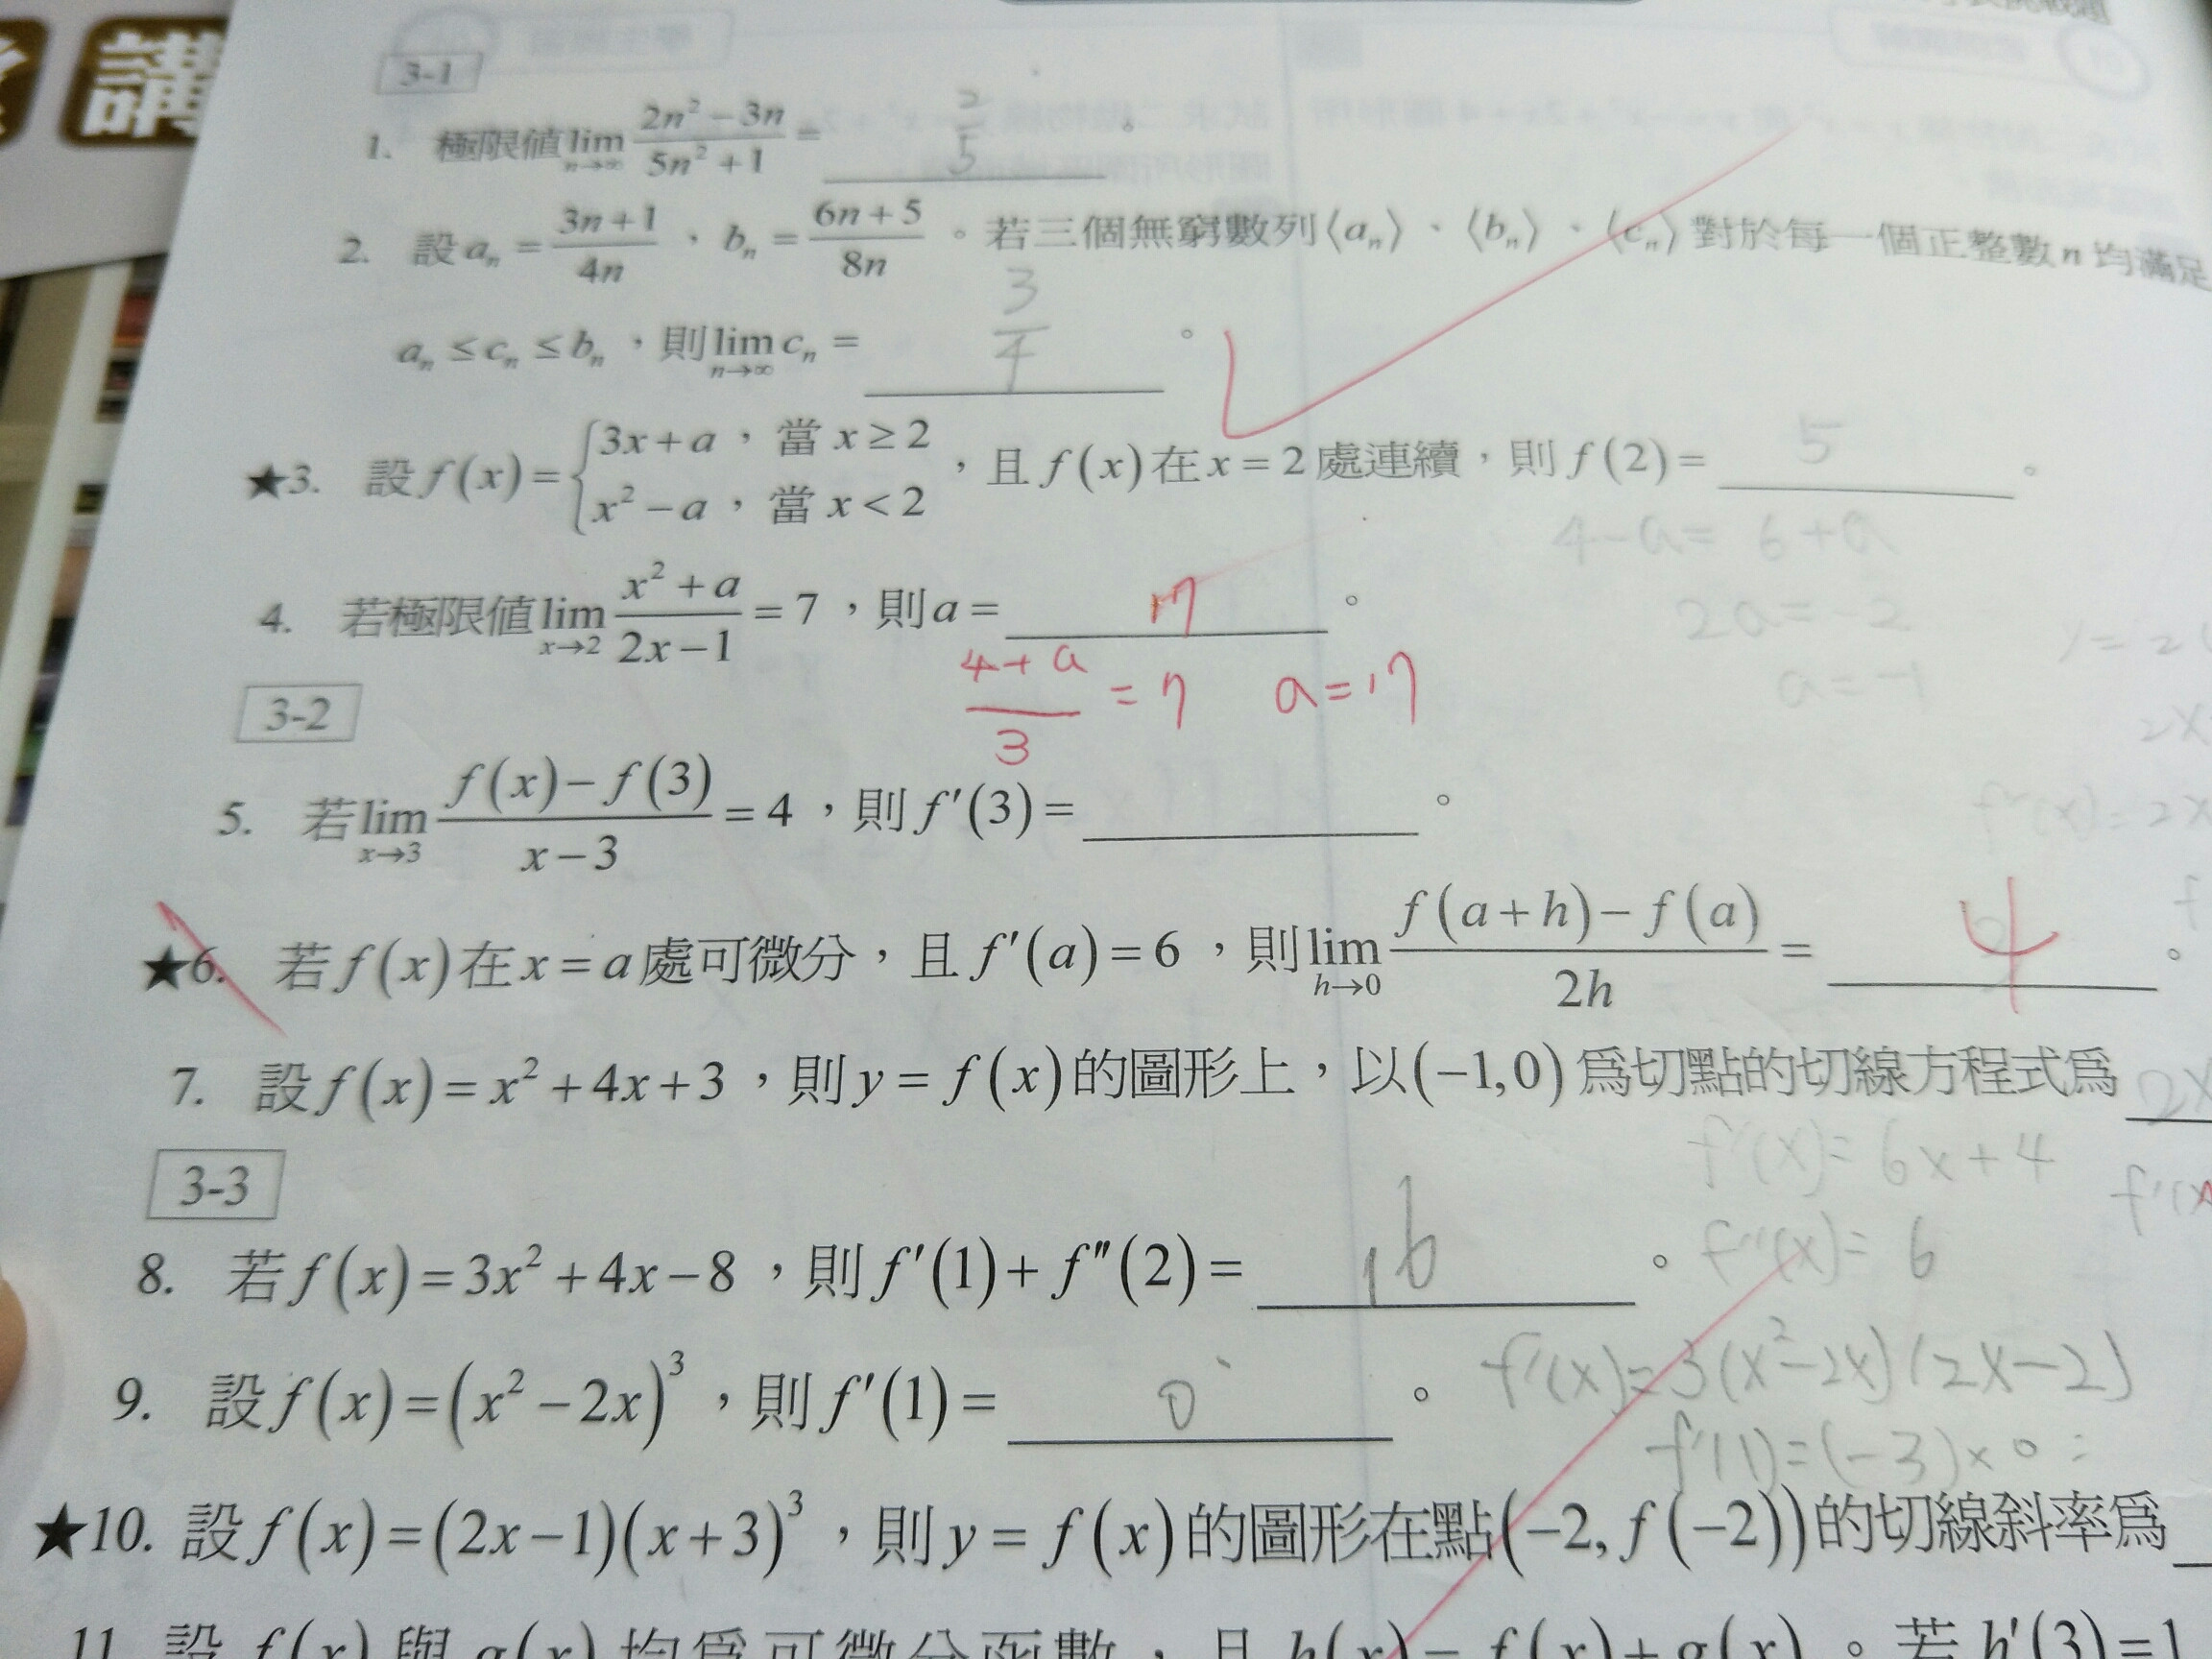 講
3-1
1. 極限值 lim n→∞ (2n² − 3n)/(5n² + 1) = 2/5 。
2. 設 aₙ = (3n + 1)/(4n) ， bₙ = (6n + 5)/(8n) 。若三個無窮數列⟨aₙ⟩、⟨bₙ⟩、⟨cₙ⟩對於每一個正整數 n 均滿足
aₙ ≤ cₙ ≤ bₙ ，則 lim n→∞ cₙ = 3/4 。
★3. 設 f(x) = { 3x + a ，當 x ≥ 2
x² − a ，當 x < 2 ，且 f(x) 在 x = 2 處連續，則 f(2) = 5 。
4−a= 6+a
2a=-2
a=-1
4. 若極限值 lim x→2 (x² + a)/(2x − 1) = 7 ，則 a = 17 。
(4+a)/3 = 7 a=17
3-2
5. 若 lim x→3 (f(x) − f(3))/(x − 3) = 4 ，則 f′(3) = 。
★6. 若 f(x) 在 x = a 處可微分，且 f′(a) = 6 ，則 lim h→0 (f(a + h) − f(a))/(2h) = 4 。
7. 設 f(x) = x² + 4x + 3 ，則 y = f(x) 的圖形上，以 (−1, 0) 爲切點的切線方程式爲 2x
f'(x)= 6x+4
3-3
8. 若 f(x) = 3x² + 4x − 8 ，則 f′(1) + f″(2) = 16 。 f''(x)= 6
9. 設 f(x) = (x² − 2x)³ ，則 f′(1) = 0 。 f'(x)=3(x²−2x)²(2x−2)
f'(1)=(-3)×0=
★10. 設 f(x) = (2x − 1)(x + 3)³ ，則 y = f(x) 的圖形在點 (−2, f(−2)) 的切線斜率爲
11. 設 f(x) 與 g(x) 均爲可微分函數，且 h(x) = f(x) + g(x) 。若 h′(3) = 1